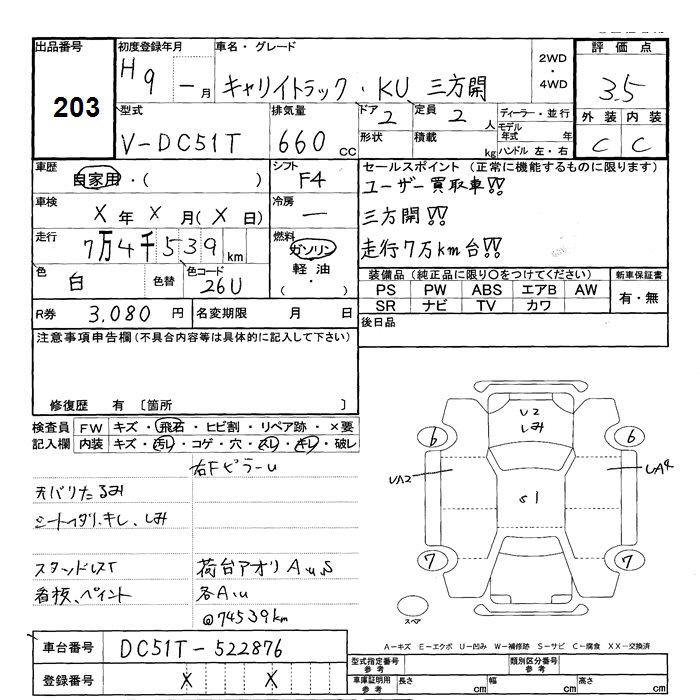 出品番号 初度登録年月 車名・グレード 2WD・4WD 評価点
203 H9 - 月 キャリイトラック・KU 三方開 3.5
型式 排気量 ドア 2 定員 2 人 ディーラー・並行 外装 内装
V-DC51T 660 CC 形状 積載 kg モデル年式 年 ハンドル 左・右 C C
車歴 自家用・( ) シフト F4 セールスポイント (正常に機能するものに限ります)
ユーザー買取車!!
車検 X 年 X 月 (X 日) 冷房 - 三方開!!
走行 7万4千539 km 燃料 ガソリン 軽油 ( ・ ) 走行7万km台!!
色 白 色替 色コード 26U 装備品 (純正品に限り○をつけてください) 新車保証書
PS PW ABS エアB AW 有・無
SR ナビ TV カワ
R券 3,080 円 名変期限 月 日 後日品
注意事項申告欄 (不具合内容等は具体的に記入して下さい)
修復歴 有 〔箇所 〕
検査員 FW キズ・飛石・ヒビ割・リペア跡・×要
記入欄 内装 キズ・汚レ・コゲ・穴・スレ・キレ・破レ
右Fピラーu
天バリたるみ
シートイタリ、キレ、しみ
スタンドレスT 荷台アオリ A,u,S
看板、ペイント 各A,u
@74539km
U2
しみ
6 6
UA2 UA4
S1
7 7
スペア
A-キズ E-エクボ U-凹み W-補修跡 S-サビ C-腐食 XX-交換済
車台番号 DC51T-522876
登録番号 X X
型式指定番号 参考 類別区分番号 参考
車庫証明用 参考 長さ cm 幅 cm 高さ cm